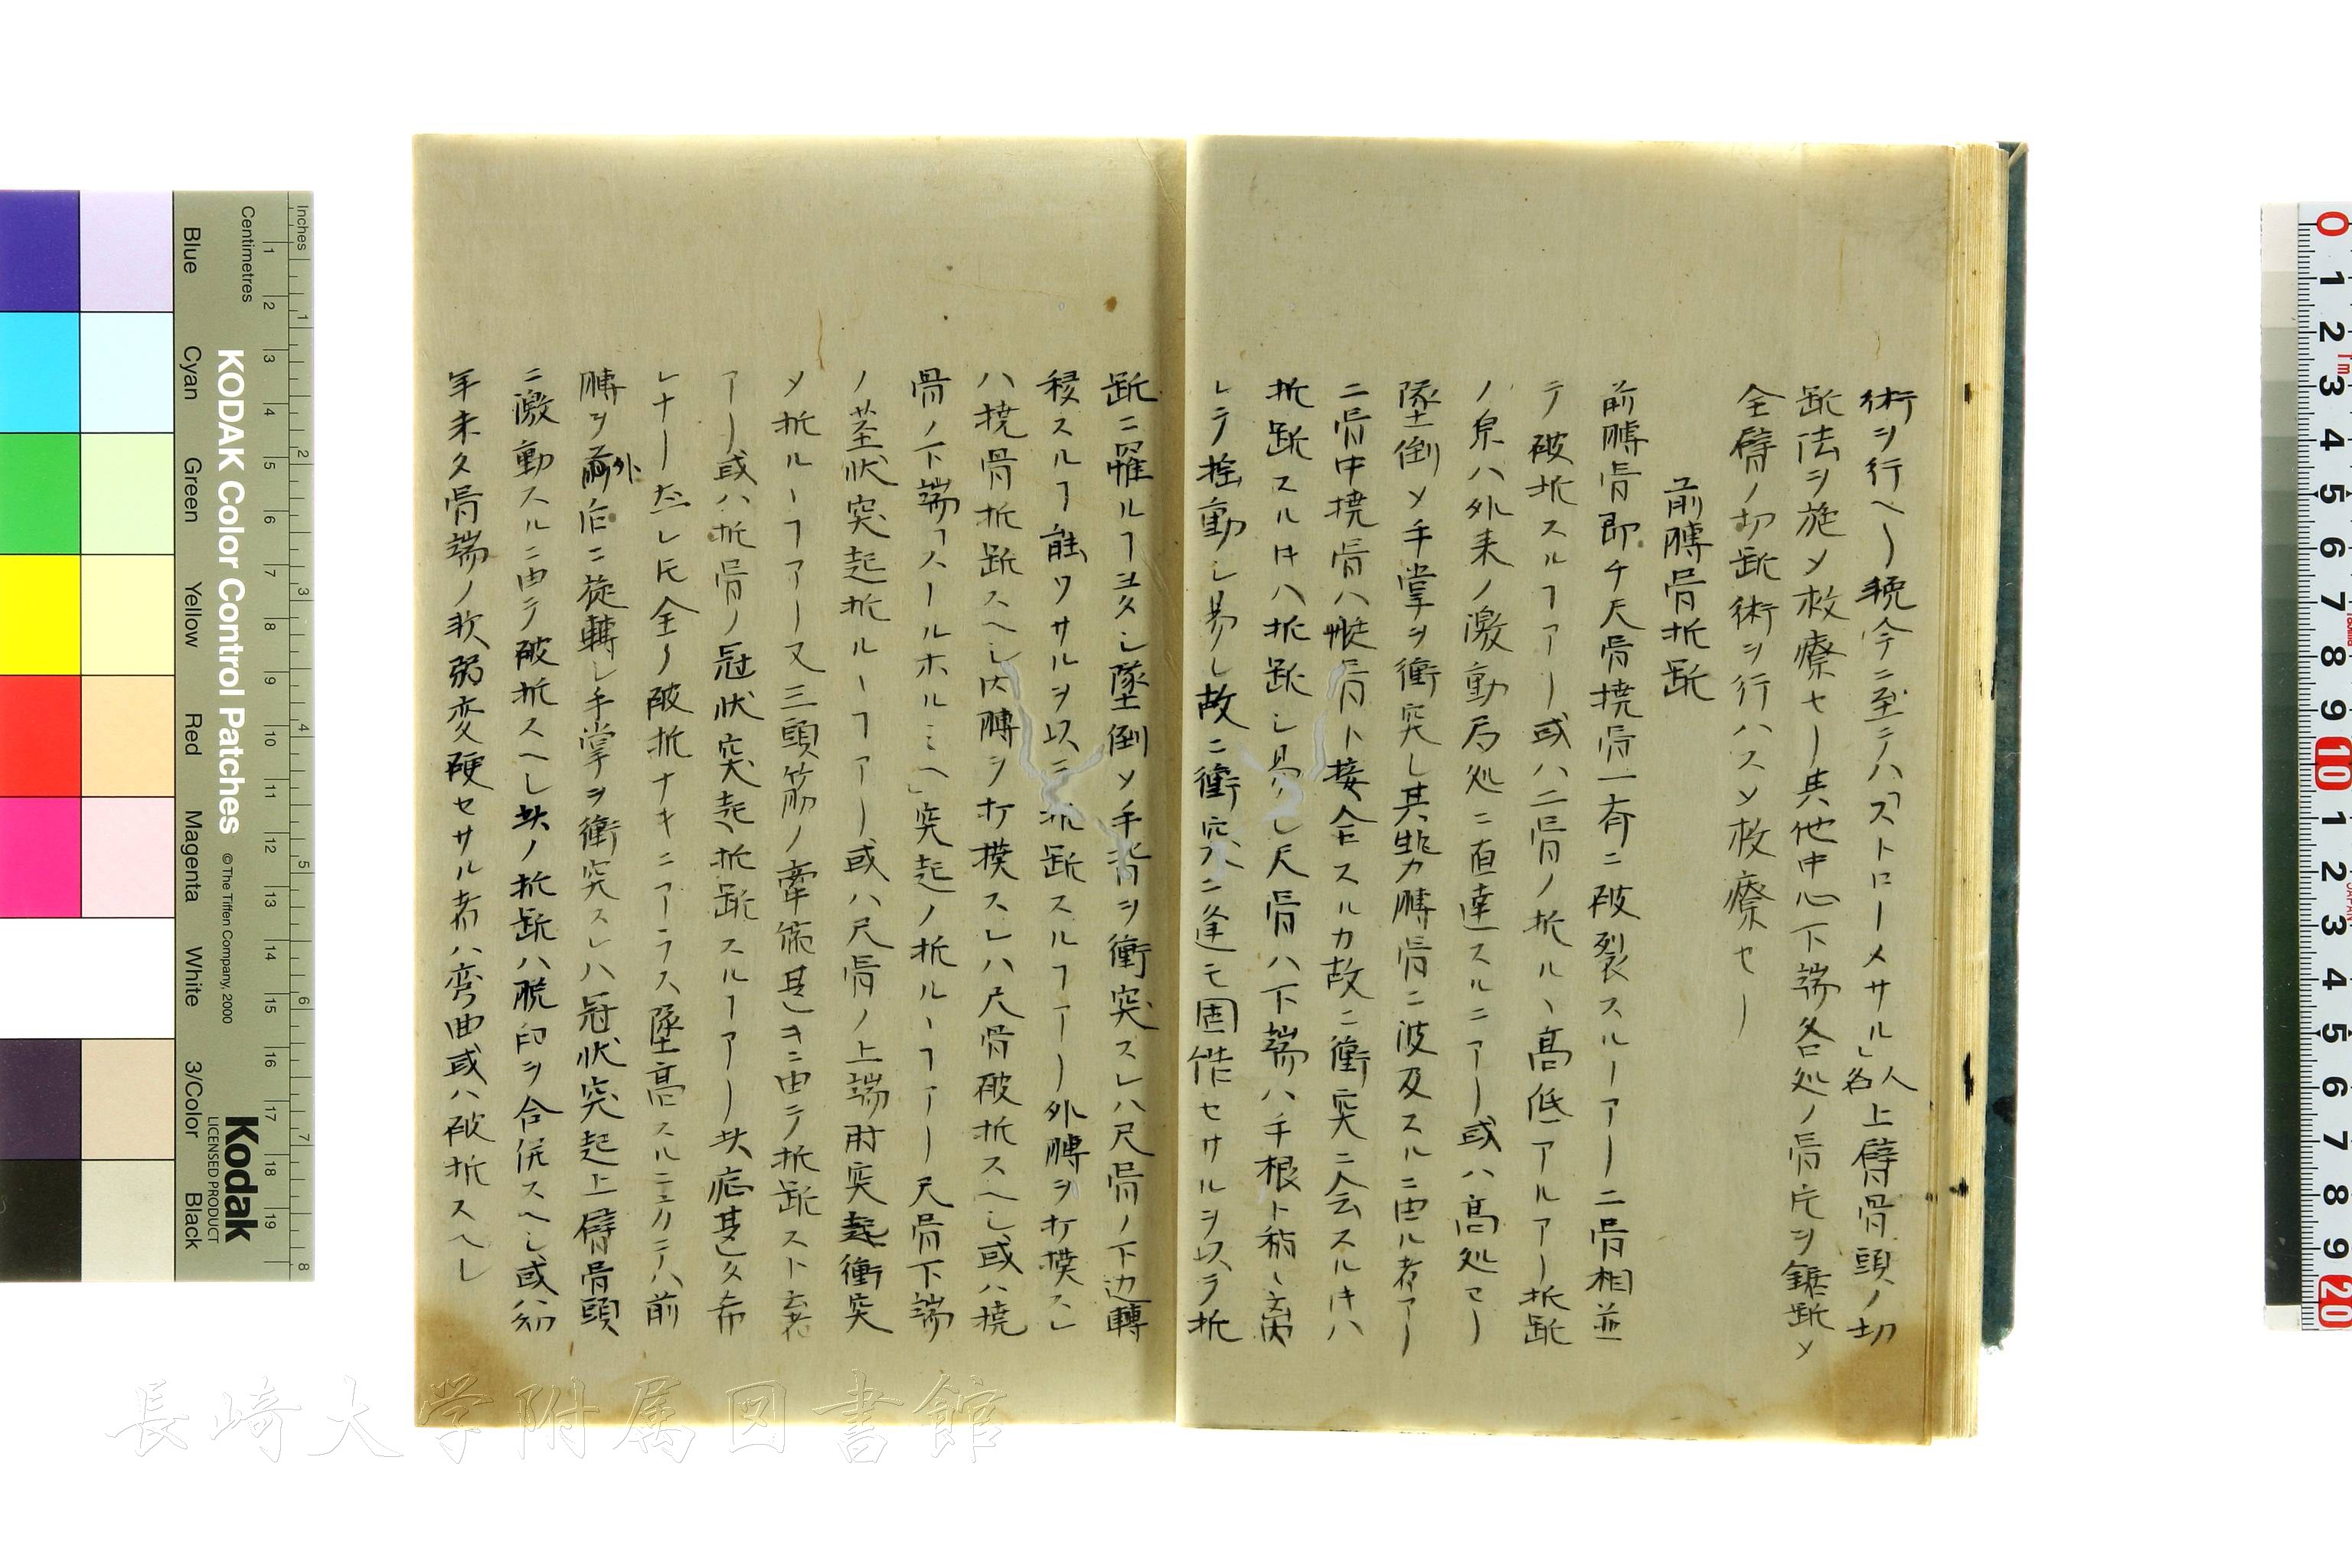 術ヲ行ヘリ輓今ニ至テハ「ストローメサル」人名上臂骨頭ノ切
断法ヲ施メ救療セリ其他中心下端各処ノ骨片ヲ鋸断メ
全臂ノ切断術ヲ行ハスメ救療セリ
前膊骨折断
前膊骨即チ尺骨撓骨一斉ニ破裂スルーアリ二骨相並
テ破折スルヿアリ或ハ二骨ノ折ルヽ高低アルアリ折断
ノ原ハ外来ノ激動局処ニ直達スルニアリ或ハ高処ヨリ
墜倒メ手掌ヲ衝突し其動力膊骨ニ波及スルニ由ル者アリ
二骨中撓骨ハ腕骨ト接合スルカ故ニ衝突ニ会スルキハ
折断スルキハ折断シ易し尺骨ハ下端ハ手根ト稍々離
レテ揺動し易し故ニ衝突ニ逢モ固能セサルヲ以テ折
断ニ罹ルヿヨタし墜倒メ手背ヲ衝突スレハ尺骨ノ下辺轉
移スルヿ能ワサルヲ以ニ折断スルヿアリ外膊ヲ打撲スレ
ハ撓骨折断スヘし内膊ヲ打撲スレハ尺骨破折スヘし或ハ撓
骨ノ下端ヿスールホルミヘ」突起ノ折ルヽヿアリ尺骨下端
ノ莖状突起折ルヽヿアリ或ハ尺骨ノ上端肘突起衝突
メ折ルヽヿアリ又三頭筋ノ牽縮甚シキニ由テ折断スト云者
アリ或ハ折骨ノ冠状突起折断スルーアリ共応甚タ希
レナリ然レ𪜈全ク破折ナキニアラス墜高スルニヨリテハ前
膊ヲ前外后ニ旋轉し手掌ヲ衝突スレハ冠状突起上臂骨頭
ニ激動スルニ由テ破折スヘし共ノ折断ハ脱臼ヲ合併スヘし或ハ幼
年未タ骨端ノ軟弱変硬セサル者ハ弯曲或ハ破折スヘし
長崎大学附属図書館
Inches
Centimetres
KODAK Color Control Patches
© The Tiffen Company, 2000
Kodak
LICENSED PRODUCT
Blue
Cyan
Green
Yellow
Red
Magenta
White
3/Color
Black